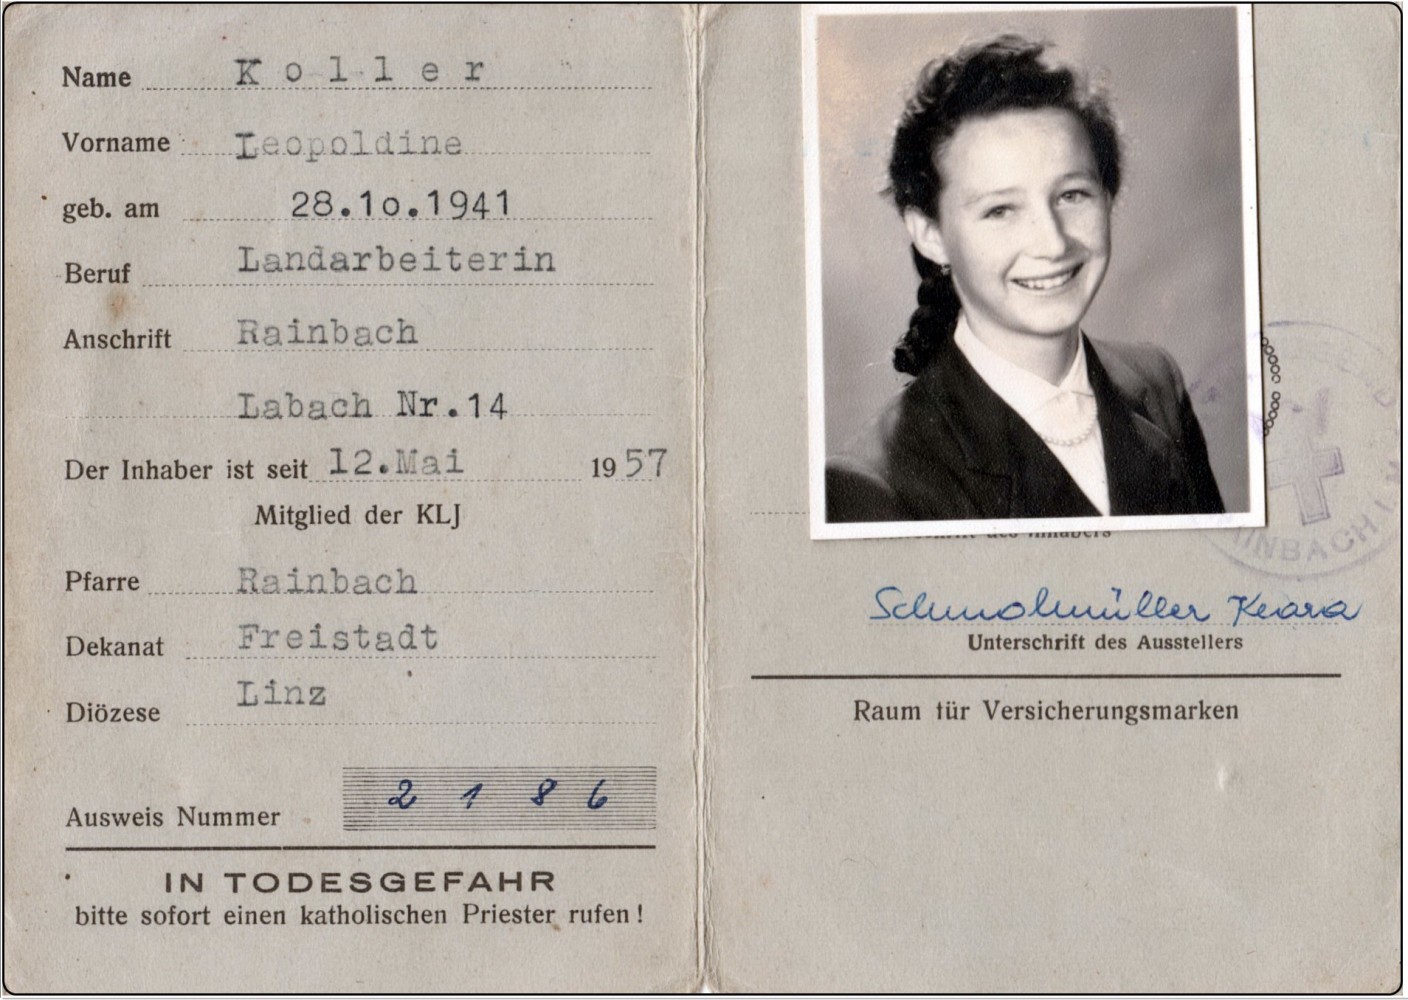 Name Koller
Vorname Leopoldine
geb. am 28.1o.1941
Beruf Landarbeiterin
Anschrift Rainbach
Labach Nr.14
Der Inhaber ist seit 12.Mai 1957
Mitglied der KLJ
Pfarre Rainbach
Dekanat Freistadt
Diözese Linz
Ausweis Nummer 2186
IN TODESGEFAHR
bitte sofort einen katholischen Priester rufen!
des Inhabers
Schmolmüller Klara
Unterschrift des Ausstellers
Raum für Versicherungsmarken